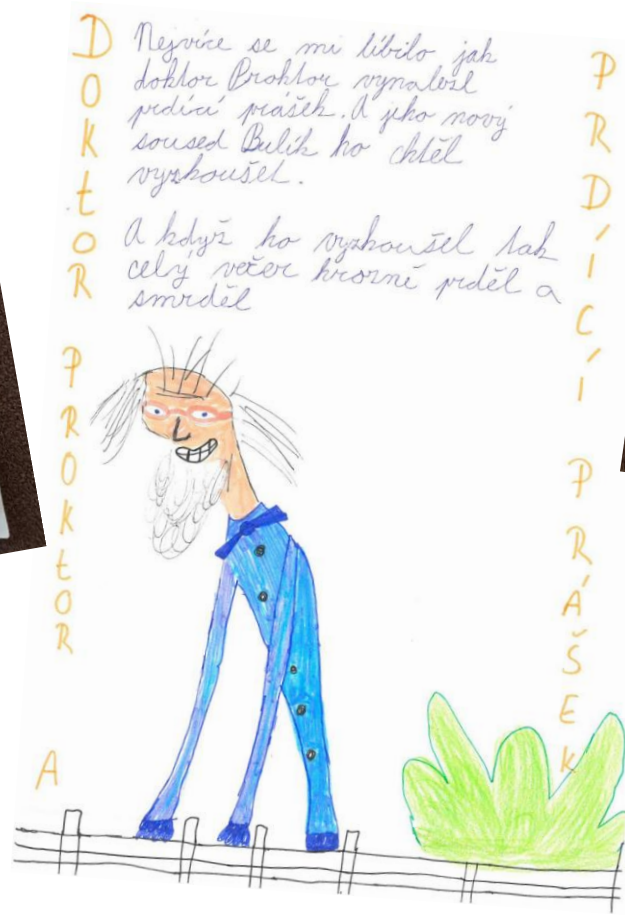 DOKTOR PROKTOR A
Nejvíce se mi líbilo jak
doktor Proktor vynalezl
prdící prášek. A jeho nový
soused Bulík ho chtěl
vyzkoušet.
A když ho vyzkoušel tak
celý večer hrozně prděl a
smrděl
PRDÍCÍ PRÁŠEK